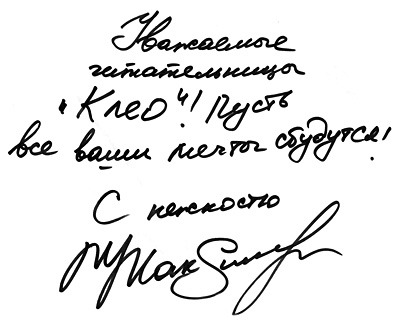 Уважаемые
читательницы
"Клео"! Пусть
все ваши мечты сбудутся!
С нежностью